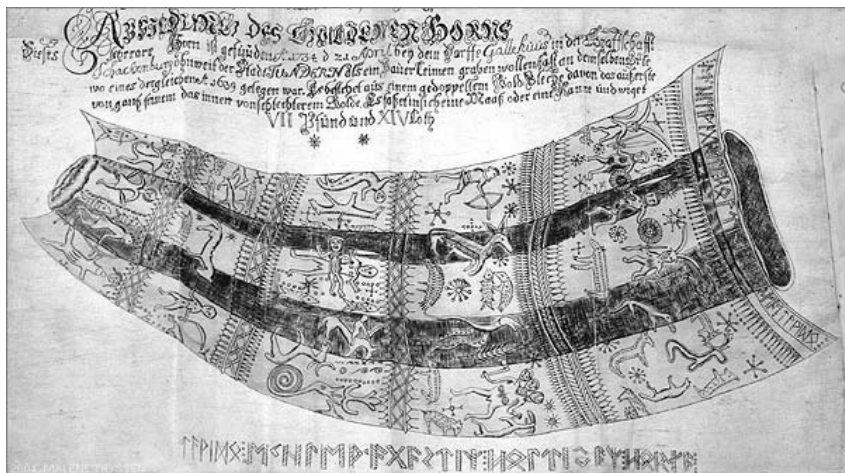 Abbildung des Guldenen Horns
Dieses Horn ist gefunden A 1734 d 21 April bey dem Dorffe Gallehuus in der Graffschafft
Schackenburg ohnweit der Stadt TUNDERN Als ein Bauer Leimen graben wollen fast an demselben Orte
wo eines dergleichen A 1639 gelegen war. Es bestehet aus einem gedoppeltem Gold Bleche, davon das äuserste
von gantz feinem das innere von schlechterem Golde. Es fasset in sich eine Maaß oder eine Kanne und wiget
VII Pfund und XIV Loth
ᛏᚨᚹᛁᛞᛟ᛬ᛖᚲᚺᛚᛖᚹᚨᚷᚨᛊᛏᛁᛉ᛬ᚺᛟᛚᛏᛁᛃᚨᛉ᛬ᚺᛟᚱᚾᚨ
2004 MALENE THYSSEN